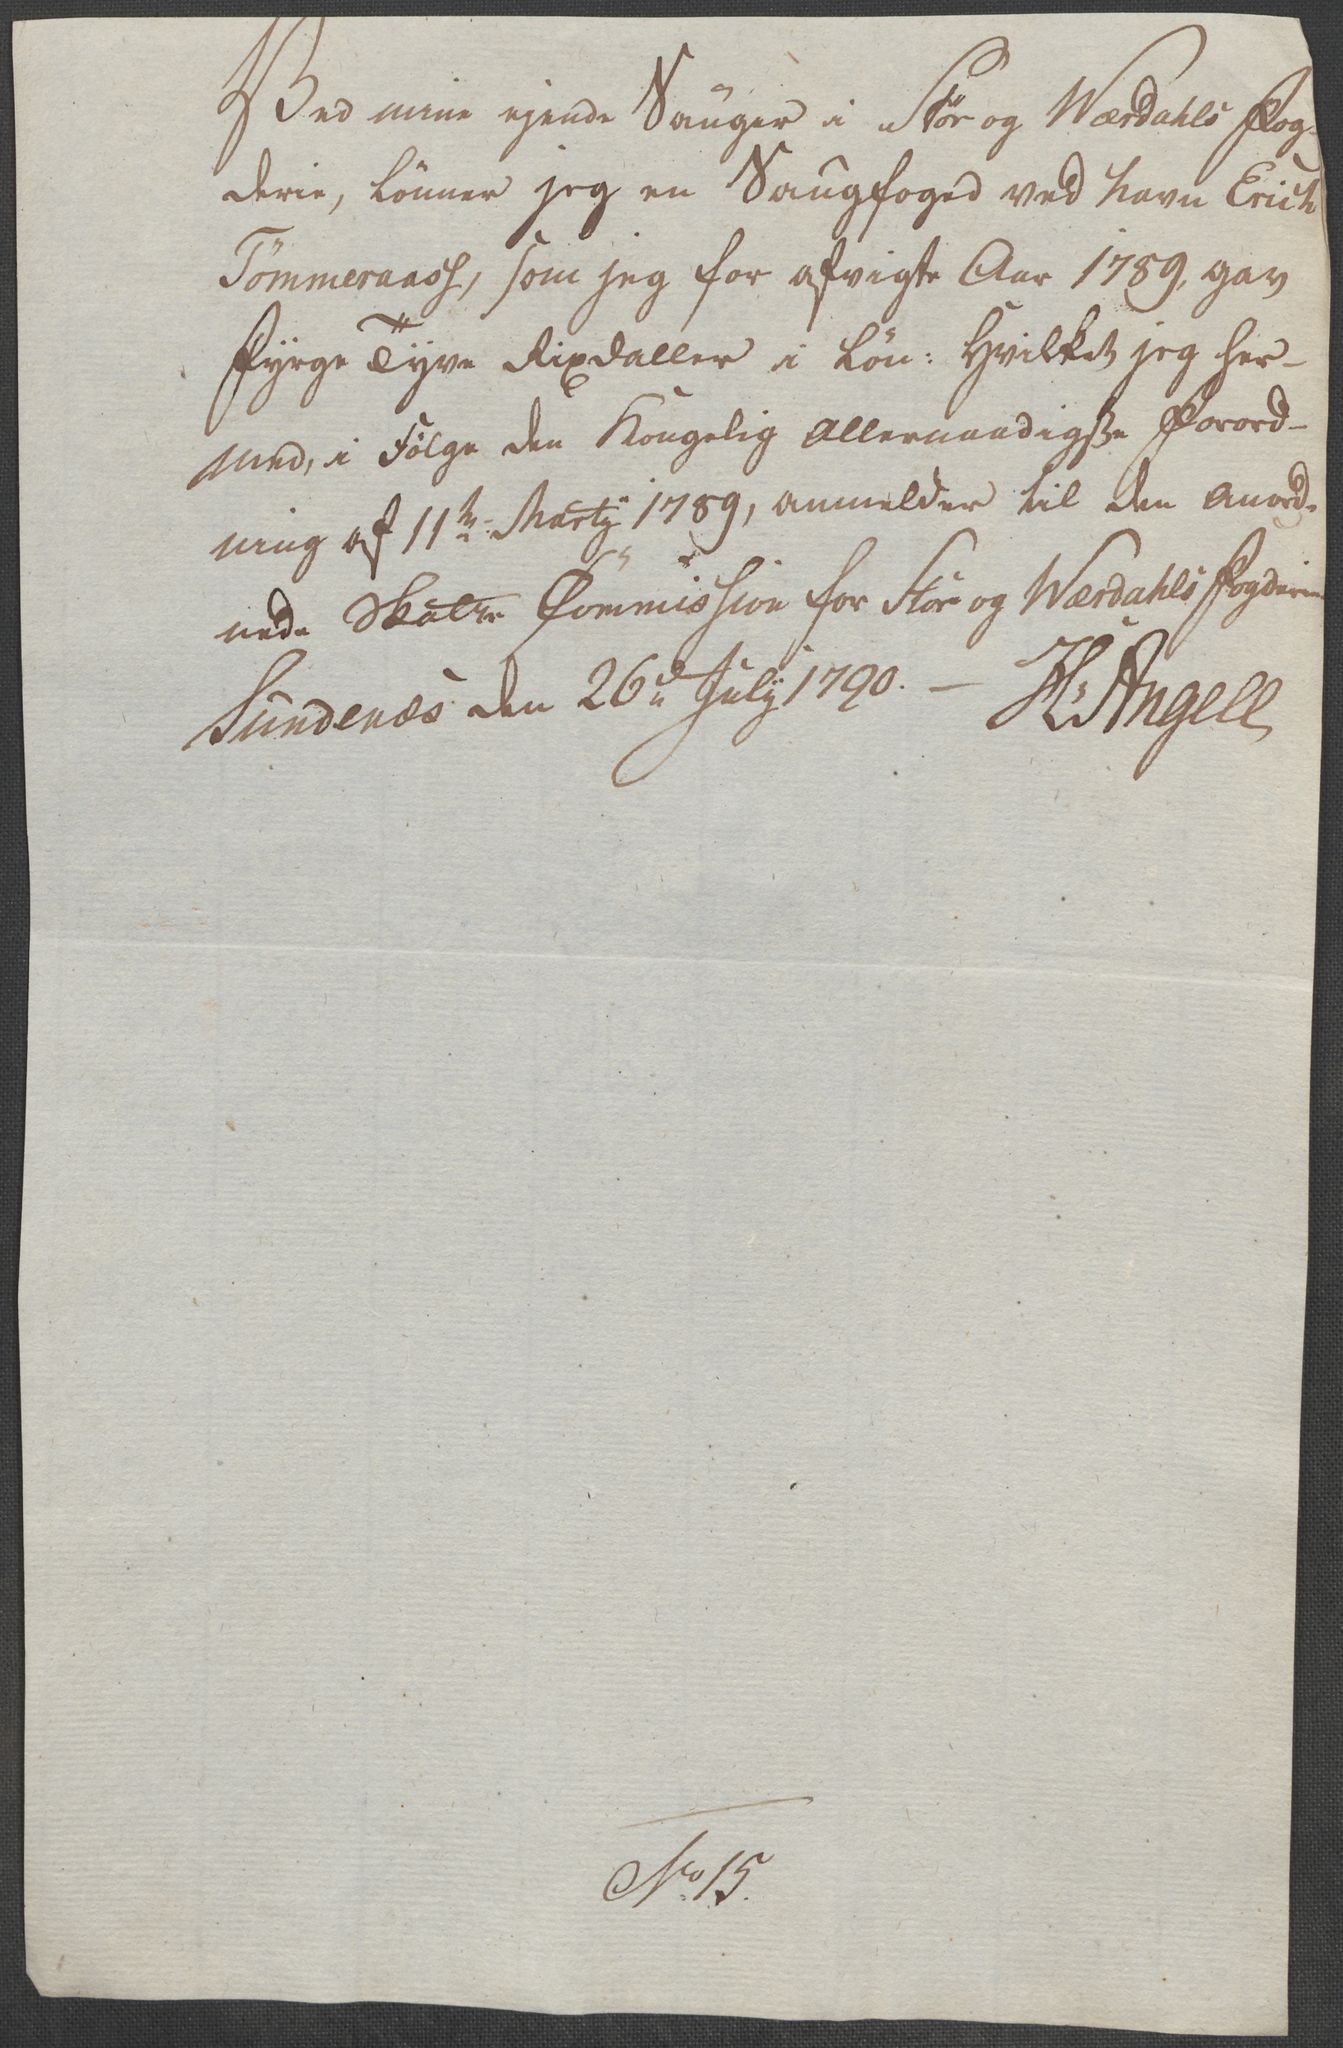 Ved mine ejende Sauger i Stör og Wærdahls Fog-
derie, lönner jeg en Saugfoged ved Navn Erich
Tömmeraasf, som jeg for afvigte Aar 1789, gav
Fyrge Tyve Rixdaller i Lön: Hvilket jeg her-
med, i Fölge den Kongelig Allernaadigste Forord-
ning af 11te Martÿ 1789, anmelder til den anord-
nede Skatte Commission for Stör og Wærdahls Fogderie
Sundenæs den 26de Julÿ 1790. — H: Angell
No 15.